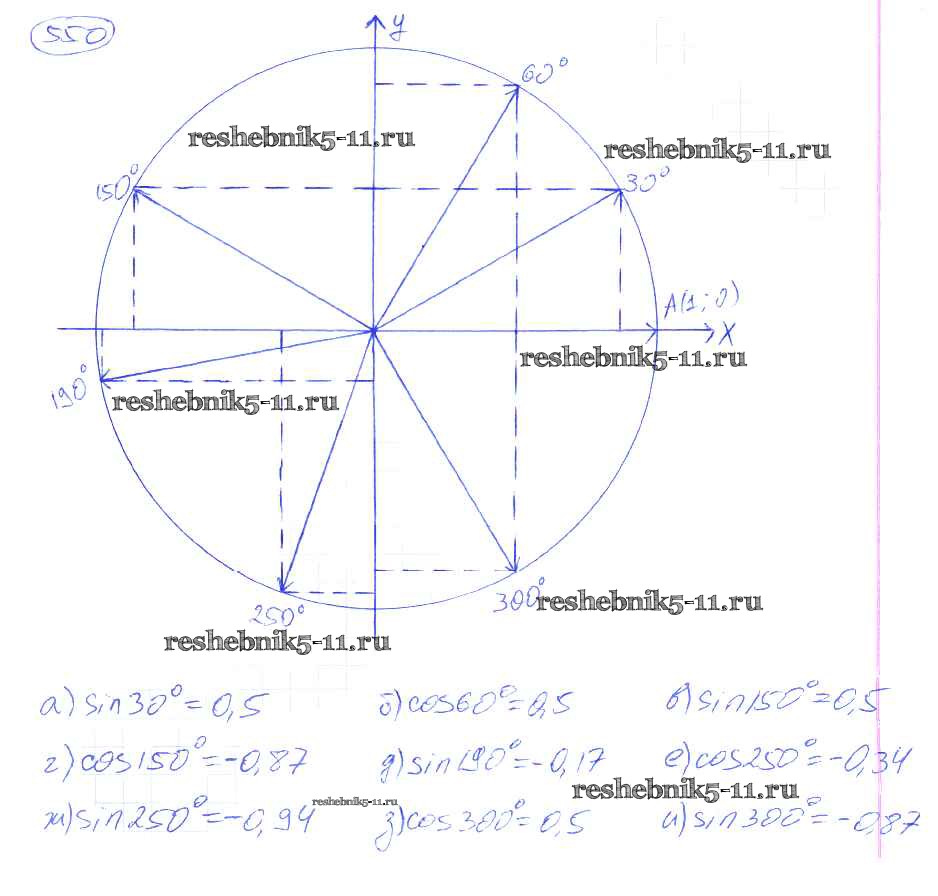 550
y
60°
reshebnik5-11.ru
reshebnik5-11.ru
150°
30°
A(1;0)
X
reshebnik5-11.ru
190°
reshebnik5-11.ru
250°
300°
reshebnik5-11.ru
reshebnik5-11.ru
а) sin30°=0,5 б) cos60°=0,5 в) sin150°=0,5
г) cos150°=-0,87 д) sin190°=-0,17 е) cos250°=-0,34
reshebnik5-11.ru
reshebnik5-11.ru
ж) sin250°=-0,94 з) cos300°=0,5 и) sin300°=-0,87